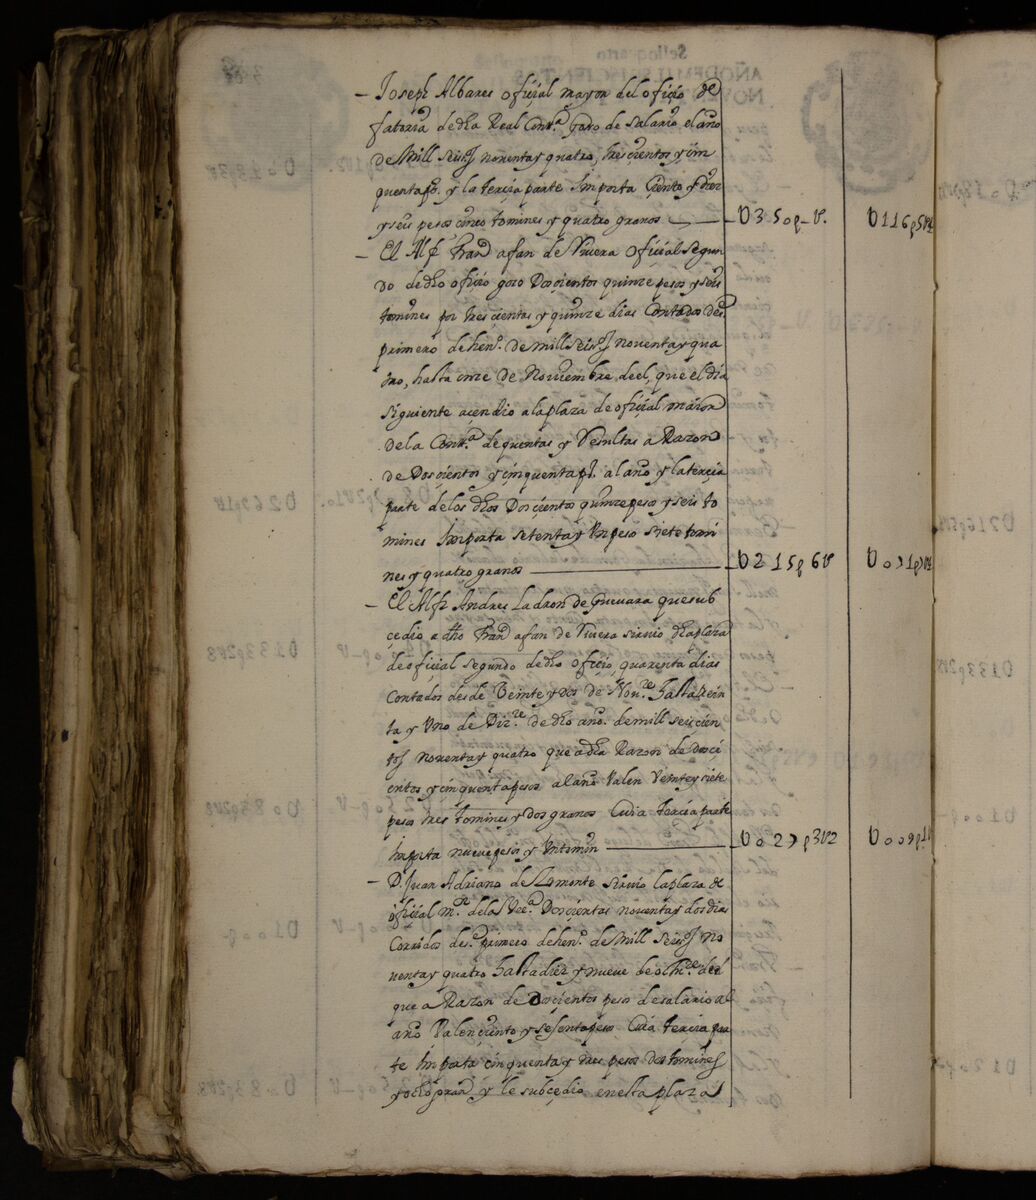 – Joseph Albares ofiçial mayor del ofiçio de
fatoria de dha Real Contª goro de salario el año
de Mill seisº noventa y quatro, trescientos y çin
quenta pº. y la terçia parte Importa Ciento y diez
y seis pesos cinco tomines y quatro granos — U350p–U. U116p5U4
– El Alfz Franco afan de Rivera Ofiçial Segun
do de dho ofiçio goro Dosçientos quinze pesos y seis
tomines por trescientos y quinze dias Contados desº
primero de henº. de mill seisº noventa y qua
tro, hasta onze de Noviembre deel, que el dia
siguiente açendio a la plaza de ofiçial maior
de la Contª de quentas y Resultas a Razon
de Dosçientos y çinquenta pº. al año y la terçia
parte de los dhos Dosçientos quinze pesos y seis to
mines Importa setenta y Un peso siete tomi
nes y quatro granos — U215p6U U071p7U4
– El Alfz Andres Ladron de Guevara que sub
çedio a dho Franco afan de Rivera sirvio dha plaza
de ofiçial segundo de dho ofiçio, quarenta dias
Contados desde Veinte y Dos de Nove. hasta trein
ta y Uno de Dize. de dho año. de mill seisçien
tos noventa y quatro que a dha Razon de dosçi
entos y çinquenta pesos al año Valen Veinte y siete
pesos tres tomines y dos granos Cuia terçia parte
Importa nueve pesos y Un tomin — U027p3U2 U009p1U
– D. Juan Adriano de Lomonte sirvio la plaza de
ofiçial mor de las Dosçientas noventa y dos dias
Corridos desº primero de henº. de Mill Seisº no
venta y quatro hasta diez y nueve de octre. deel
que a Razon de Dosçientos peso de salario al
año Valen çiento y sesenta pesos Cuia terçia par
te Importa çinquenta y tres pesos dos tomines
y ocho granos y le subçedio en esta plaza